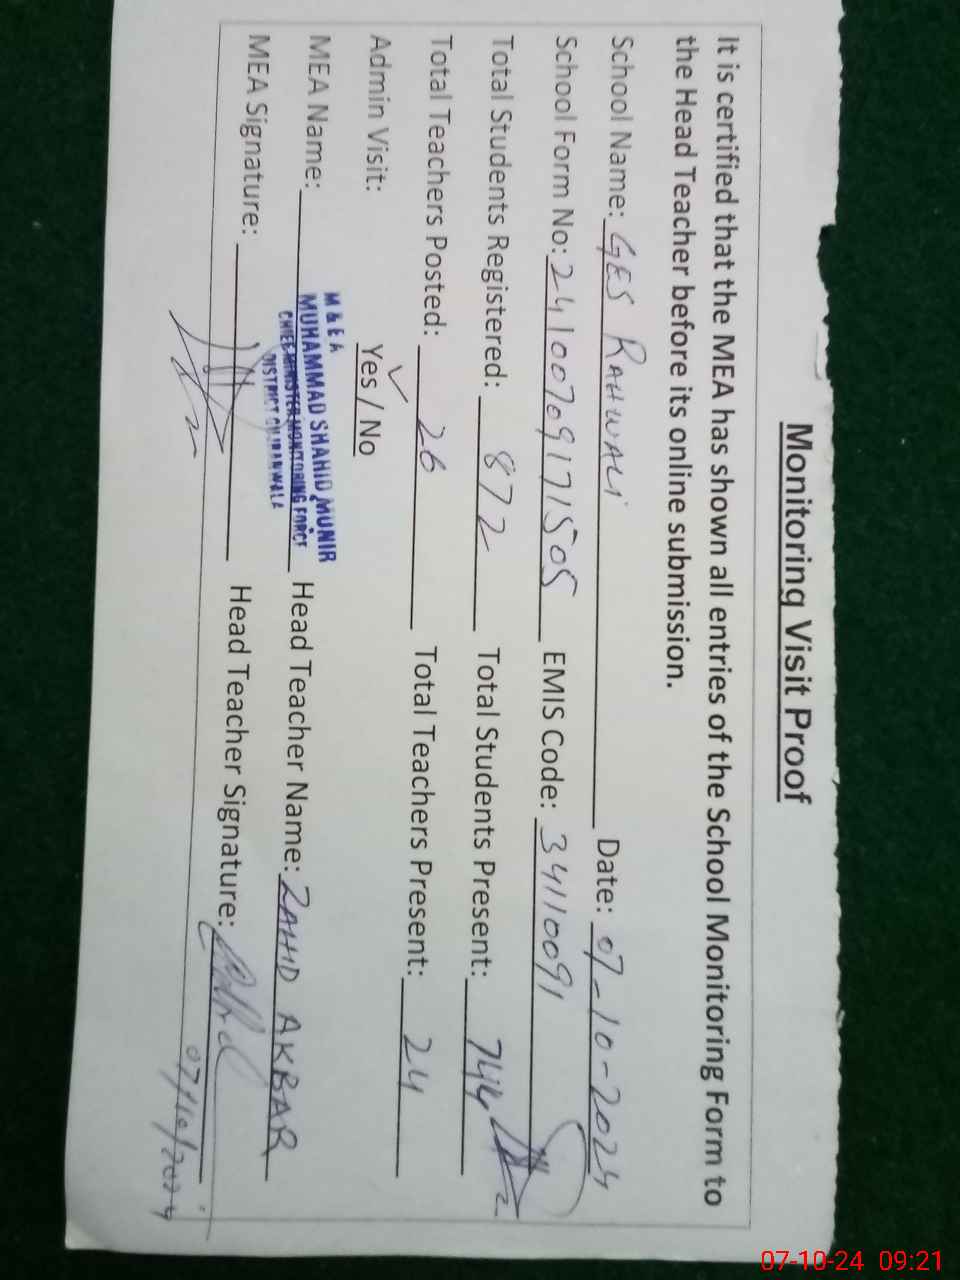 Monitoring Visit Proof
It is certified that the MEA has shown all entries of the School Monitoring Form to
the Head Teacher before its online submission.
School Name: GES RAHWALI Date: 07-10-2024
School Form No: 24100709171505 EMIS Code: 34110091
Total Students Registered: 872 Total Students Present: 744
Total Teachers Posted: 26 Total Teachers Present: 24
Admin Visit: Yes / No
M & E A
MUHAMMAD SHAHID MUNIR
CHIEF MINISTER MONITORING FORCE
DISTRICT GUJRANWALA
MEA Name: Head Teacher Name: ZAHID AKBAR
MEA Signature: Head Teacher Signature:
07/10/2024
07-10-24 09:21